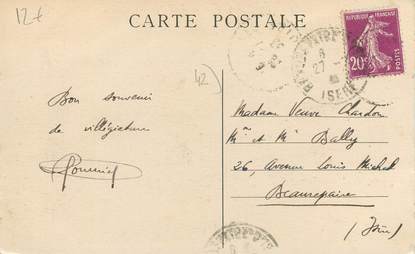 12€
CARTE POSTALE
RÉPUBLIQUE FRANÇAISE
20c
POSTES
ISERE
6
27
42
Bon souvenir
de villégiature
Madame Veuve Chardon
Mme et Mr Bally
26, Avenue Louis Michel
Beaurepaire
(Isère)